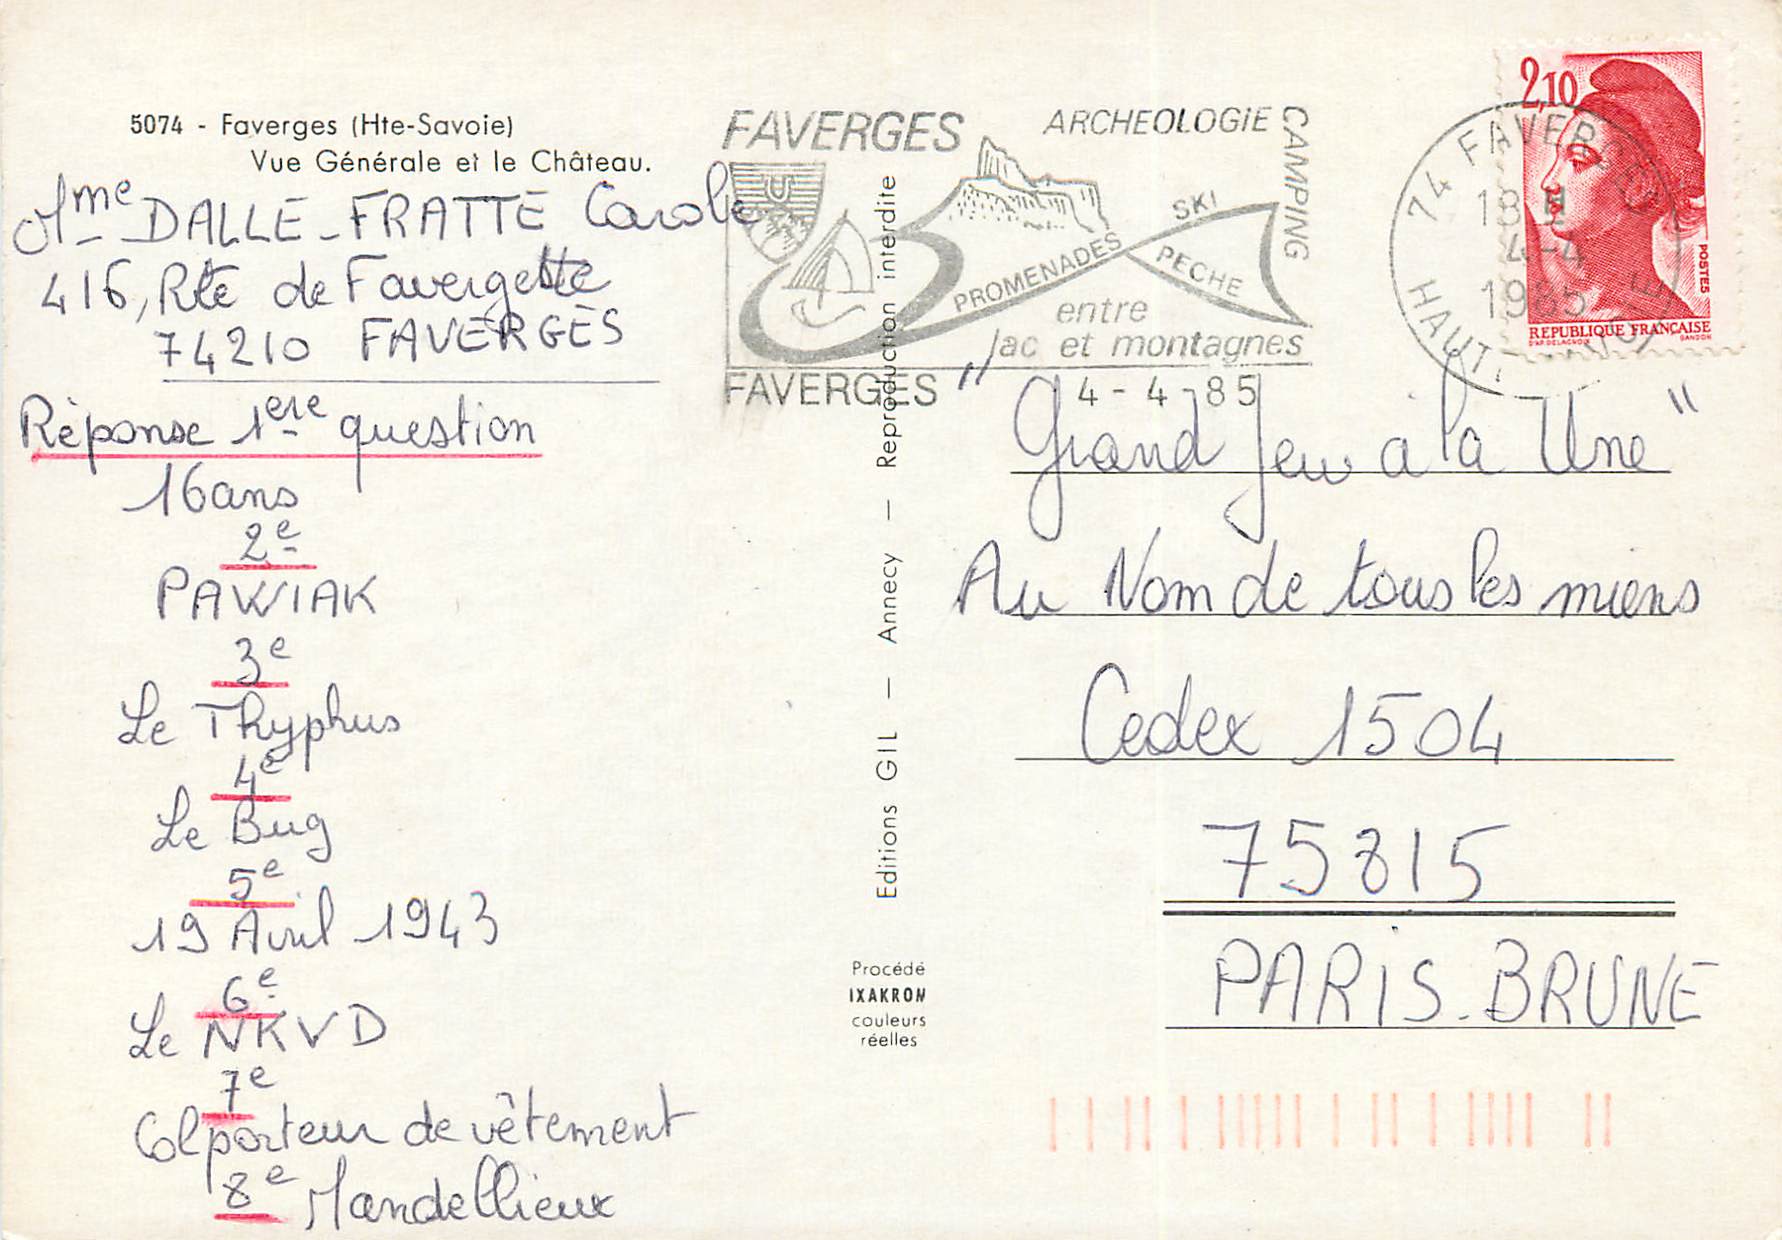 5074 - Faverges (Hte-Savoie)
Vue Générale et le Château.
Mme DALLE-FRATTE Carole
416, Rte de Favergette
74210 FAVERGES
Réponse 1ere question
16 ans
2e
PAWIAK
3e
Le Thyphus
4e
Le Bug
5e
19 Avril 1943
6e
Le NKVD
7e
Colporteur de vêtement
8e Mandellieux
Editions GIL — Annecy — Reproduction interdite
Procédé
IXAKROM
couleurs
réelles
FAVERGES
ARCHEOLOGIE
CAMPING
SKI
PECHE
PROMENADES
entre
lac et montagnes
FAVERGES
4-4-85
74 FAVERGES
18 H
4-4
1985
HAUTE
2,10
POSTES
REPUBLIQUE FRANÇAISE
D'AP. DELACROIX
GANDON
"Grand Jeu à la Une"
Au Nom de tous les miens
Cedex 1504
75815
PARIS-BRUNE